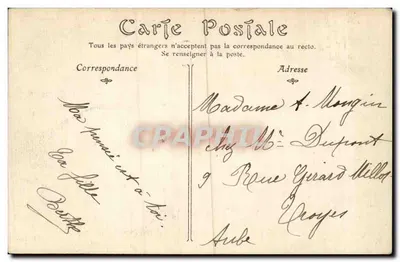 Carte Postale
Tous les pays étrangers n'acceptent pas la correspondance au recto.
Se renseigner à la poste.
Correspondance
Adresse
Ma pensée est à toi.
Ta fille
Berthe
Madame A. Mongin
Chez Mr Dupont
9 Rue Gerard Millot
Troyes
Aube
CPAPHIL